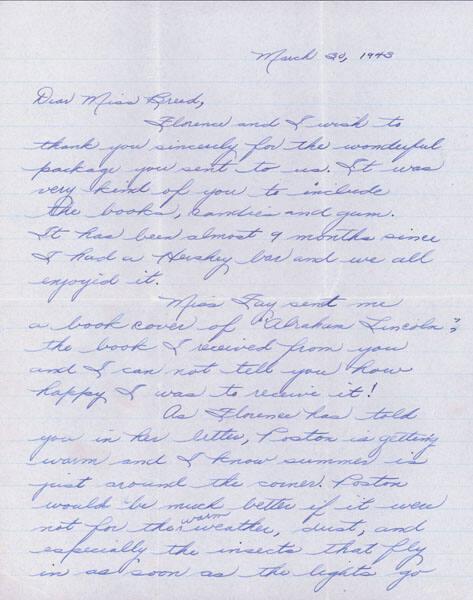 March 30, 1943
Dear Miss Breed,
Florence and I wish to
thank you sincerely for the wonderful
package you sent to us. It was
very kind of you to include
the books, candies and gum.
It has been almost 9 months since
I had a Hershey bar and we all
enjoyid it.
Miss Fay sent me
a book cover of "Abraham Lincoln",
the book I received from you
and I can not tell you how
happy I was to receive it!
As Florence has told
you in her letter, Poston is getting
warm and I know summer is
just around the corner. Poston
would be much better if it were
not for the warm weather, dust, and
especially the insects that fly
in as soon as the lights go